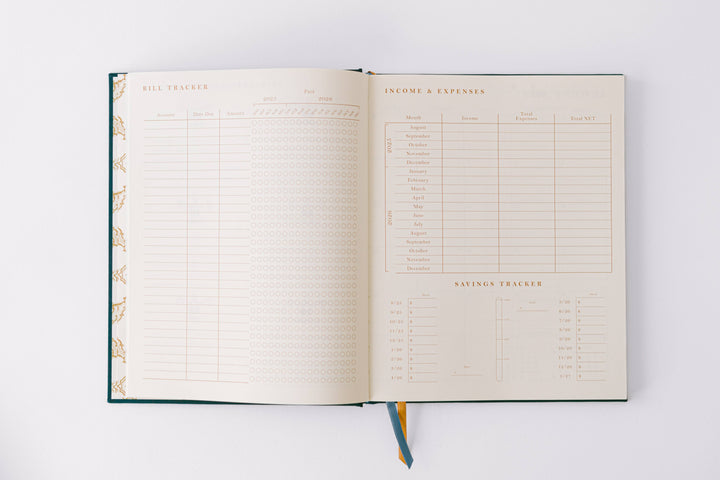 BILL TRACKER
Paid
2025 2026
Account Date Due Amount
INCOME & EXPENSES
Month Income Total Expenses Total NET
2025
August
September
October
November
December
2026
January
February
March
April
May
June
July
August
September
October
November
December
SAVINGS TRACKER
8/25 $
9/25 $
10/25 $
11/25 $
12/25 $
1/26 $
2/26 $
3/26 $
4/26 $
5/26 $
6/26 $
7/26 $
8/26 $
9/26 $
10/26 $
11/26 $
12/26 $